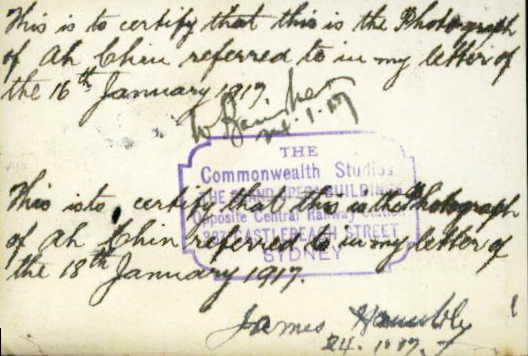 This is to certify that this is the Photograph
of Ah Chin referred to in my letter of
the 16th January 1917
THE
Commonwealth Studios
THE GRAND OPERA BUILDINGS
Opposite Central Railway Station
CASTLEREAGH STREET
SYDNEY
This is to certify that this is the Photograph
of Ah Chin referred to in my letter of
the 18th January 1917.
James